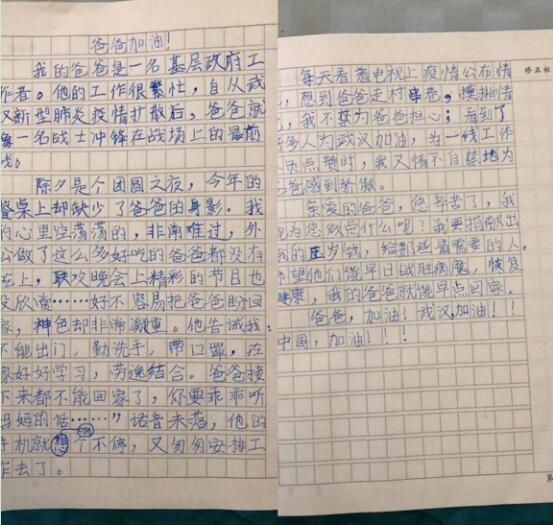 爸爸加油!
我的爸爸是一名基层政府工
作者。他的工作很繁忙,自从武
汉新型肺炎疫情扩散后,爸爸就
像一名战士冲锋在战场上的最前
线。
除夕是个团圆之夜,今年的
餐桌上却缺少了爸爸的身影。我
的心里空荡荡的,非常难过,外
公做了这么多好吃的爸爸都没有
吃上,联欢晚会上精彩的节目也
没欣赏……好不容易把爸爸盼回
家,神色却非常凝重。他告诫我:
不能出门,勤洗手,带口罩,在
家好好学习,劳逸结合。爸爸接
下来都不能回家了,你要乖乖听
妈妈的话……”话音未落,他的
手机就响个不停,又匆匆安排工
作去了。
修正栏
每天看着电视上疫情公布情
况,想到爸爸走村串巷,摸排情
我不禁为爸爸担心;看到了
许多人为武汉加油,为一线工作
人员点赞时,我又情不自禁地为
爸爸感到骄傲。
亲爱的爸爸,您辛苦了,我
能为您做点什么呢?我要捐献出
我的压岁钱,给那些最需要的人。
希望他们能早日战胜病魔,恢复
健康,我的爸爸就能早点回家。
爸爸,加油!武汉,加油!!
中国,加油!!!
第